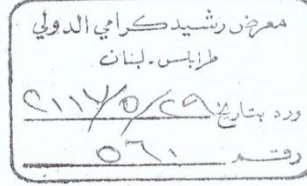 معرض رشيد كرامي الدولي
طرابلس - لبنان
ورد بتاريخ ٢٠١٧/٥/٢٩
رقم ٥٦١